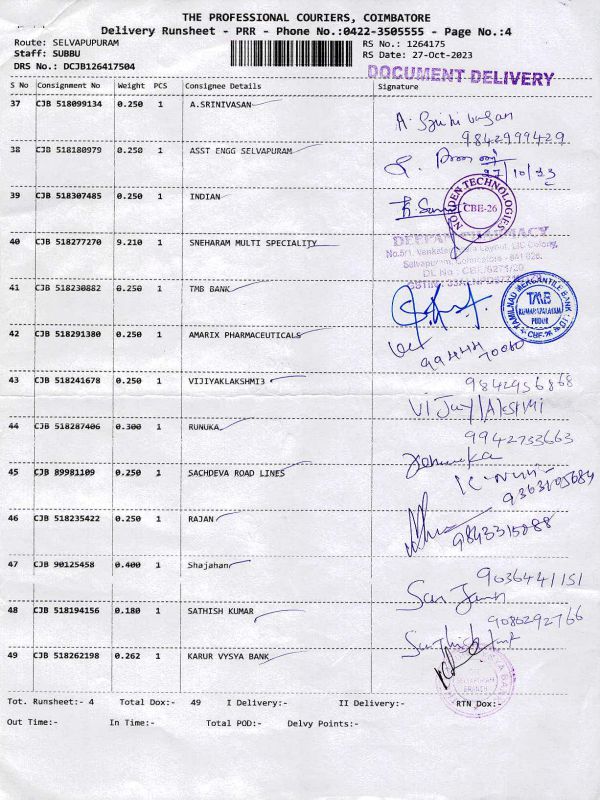 THE PROFESSIONAL COURIERS, COIMBATORE
Delivery Runsheet - PRR - Phone No.:0422-3505555 - Page No.:4
Route: SELVAPUPURAM RS No.: 1264175
Staff: SUBBU RS Date: 27-Oct-2023
DRS No.: DCJB126417504 DOCUMENT DELIVERY
S No Consignment No Weight PCS Consignee Details Signature
37 CJB 518099134 0.250 1 A.SRINIVASAN
A. Srinivasan
9842999429
38 CJB 518180979 0.250 1 ASST ENGG SELVAPURAM
27/10/23
39 CJB 518307485 0.250 1 INDIAN
NORDEN TECHNOLOGIES
CBE-26
40 CJB 518277270 9.210 1 SNEHARAM MULTI SPECIALITY
DEEPAM PHARMACY
41 CJB 518230882 0.250 1 TMB BANK
TAMILNAD MERCANTILE BANK
TMB
KUMARAPALAYAM
PUDUR
CBE-26
42 CJB 518291380 0.250 1 AMARIX PHARMACEUTICALS
43 CJB 518241678 0.250 1 VIJIYAKLAKSHMI3
9842956868
Vijay lakshmi
44 CJB 518287406 0.300 1 RUNUKA
9942733663
45 CJB 89981109 0.250 1 SACHDEVA ROAD LINES
9363105684
46 CJB 518235422 0.250 1 RAJAN
9843315888
47 CJB 90125458 0.400 1 Shajahan
9036441151
48 CJB 518194156 0.180 1 SATHISH KUMAR
9080292766
49 CJB 518262198 0.262 1 KARUR VYSYA BANK
SELVAPURAM
BRANCH
Tot. Runsheet:- 4 Total Dox:- 49 I Delivery:- II Delivery:- RTN Dox:-
Out Time:- In Time:- Total POD:- Delvy Points:-